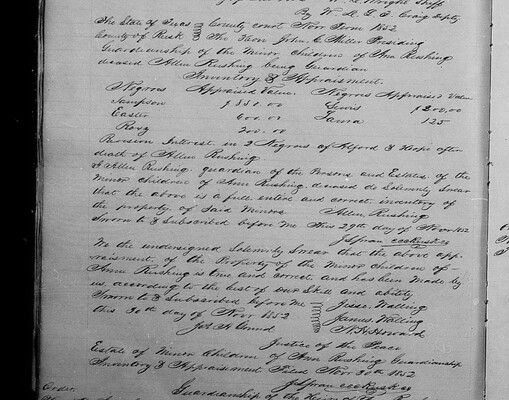 Wright Shff
By W. L. G. G. Craig Depty
The State of Texas County court Nov Term 1852
County of Rusk The Hon John C. Miller Presiding
Guardianship of the Minor children of Ann Rushing
deceased Allen Rushing being Guardian
Inventory & Appraisment.
Negroes Appraised Value. Negroes Appraised Value
Sampson $550.00 Lewis $200.00
Easter 600.00 Laura 125
Rose 200.00
Revision Interest in 2 Negroes a Alford & Hope after
death of Allen Rushing.
I Allen Rushing guardian of the Persons and Estates of the
Minor children of Ann Rushing deceased do Solemnly Swear
that the above is a full entire and correct inventory of
the property of Said Minors Allen Rushing
Sworn to & Subscribed before Me This 29th day of Nov 1852
We the undersigned Solemnly Swear that the above app-
raisment of the Property of the Minor children of
Ann Rushing is True and correct and has been Made by
us according to the best of our Skill and ability
Sworn to & Subscribed before Me Jesse Walling
this 30th day of Nov 1852 James Walling
N. H. Howard
Justice of the Peace
Estate of Minor Children of Ann Rushing Guardianship
Inventory & Appraisement Filed Nov 30th 1852
Order
Guardianship of the Heirs of